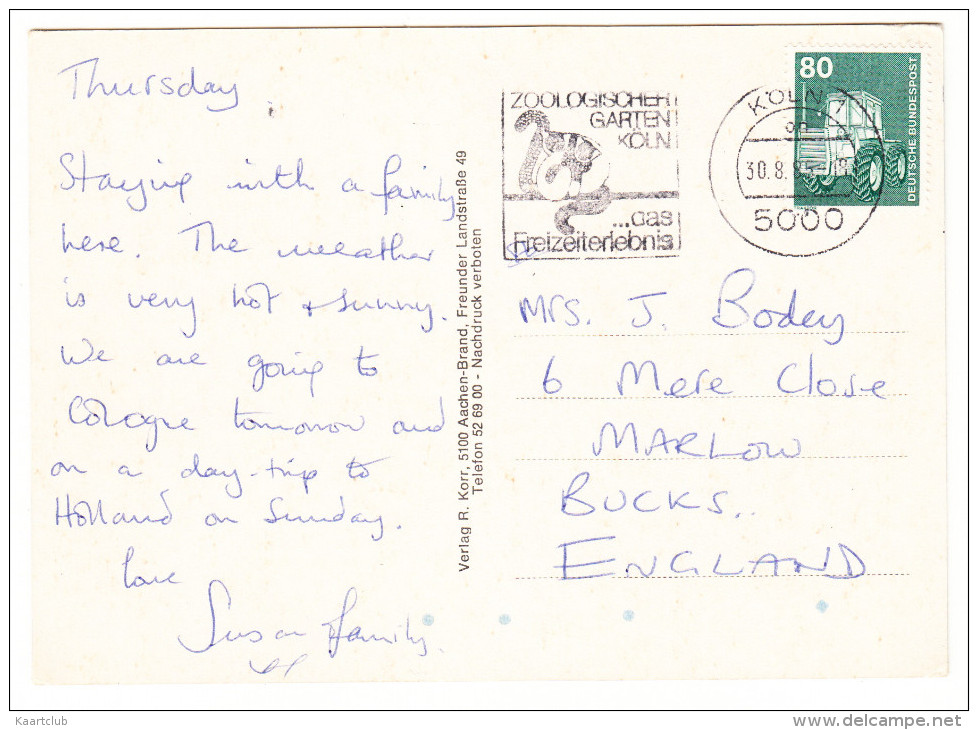 Thursday
Staying with a family
here. The weather
is very hot & sunny.
We are going to
Cologne tomorrow and
on a day-trip to
Holland on Sunday.
love
Susan & family.
Verlag R. Korr, 5100 Aachen-Brand, Freunder Landstraße 49
Telefon 52 69 00 - Nachdruck verboten
ZOOLOGISCHER
GARTEN
KÖLN
...das
Freizeiterlebnis
KÖLN 1
30.8.85
5000
80
DEUTSCHE BUNDESPOST
Mrs. J. Bodey
6 Mere Close
MARLOW
BUCKS.
ENGLAND
Kaartclub
delcampe.net